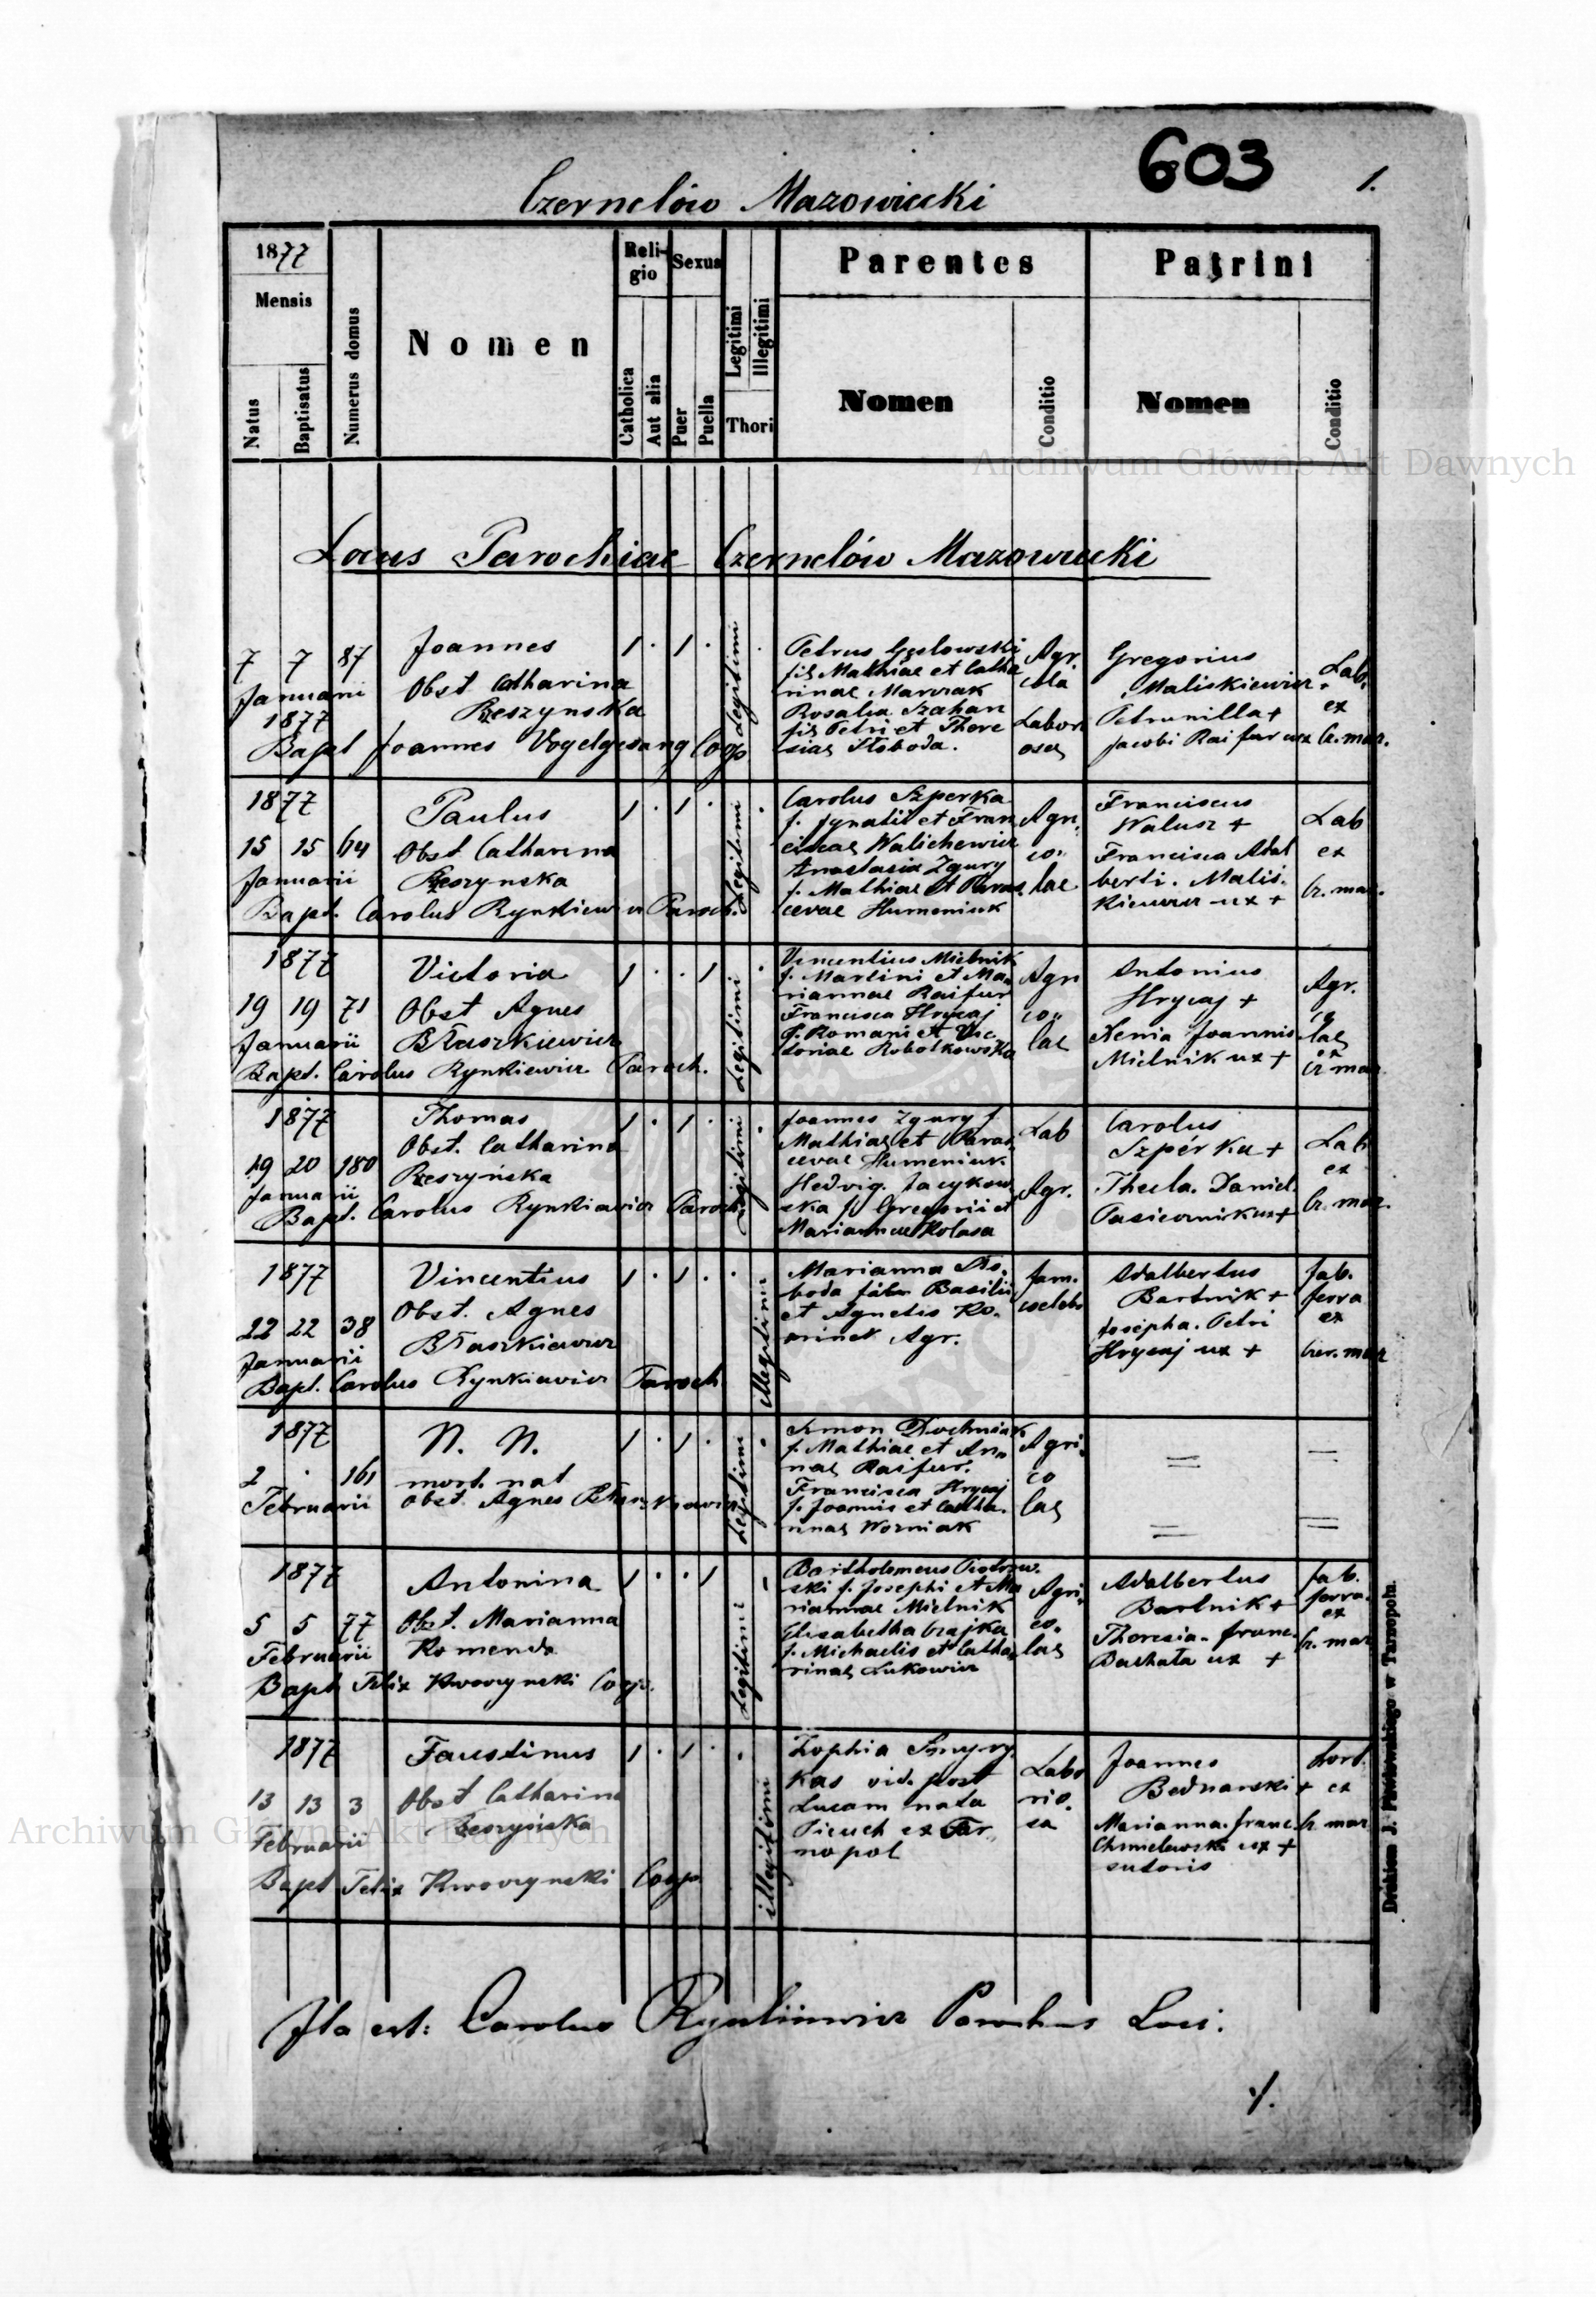 603
1.
Czernelów Mazowiecki
1877
Mensis
Natus
Baptisatus
Numerus domus
Nomen
Religio
Catholica
Aut alia
Sexus
Puer
Puella
Legitimi
Illegitimi
Thori
Parentes
Nomen
Conditio
Patrini
Nomen
Conditio
Archiwum Główne Akt Dawnych
Locus Parochiae Czernelów Mazowiecki
7 7 87
Januarii
1877
Joannes
Obst Catharina
Rzeszynska
Bapt Joannes Vogelgesang Coop
1 . 1 .
Legitimi
Petrus
fil Mathiae et Catha
rinae Marczak
Rosalia
fil Petri et There
siae Słoboda.
Agr.
cola
Labori
osa
Gregorius
Maliskiewicz
Petrunilla +
Jacobi Raifur ux
Lab.
ex
Cz. maz.
1877
15 15 64
Januarii
Paulus
Obst. Catharina
Rzeszynska
Bapt. Carolus Rynkiewicz Paroch.
1 . 1 .
Legitimi
Carolus Szperka
f. Ignatii et Fran
ciscae Walichewicz
Anastasia Zgury
f. Mathiae et Paras
cevae Humeniuk
Agri
co
lae
Franciscus
Walusz +
Francisca Adal
berti. Malis.
kiewicz ux +
Lab
ex
Cz. maz.
1877
19 19 71
Januarii
Victoria
Obst Agnes
Błaszkiewicz
Bapt. Carolus Rynkiewicz Paroch.
1 . . 1
Legitimi
Vincentius Mielnik
f. Martini et Ma
riannae Raifur
Francisca Hrycaj
f. Romani et Vic
toriae Robotkowska
Agri
co
lae
Antonius
Hrycaj +
Xenia Joannis
Mielnik ux +
Agr.
co
lae
ex
Cz maz
1877
19 20 180
Januarii
Thomas
Obst. Catharina
Rzeszyńska
Bapt. Carolus Rynkiewicz Paroch
1 . 1 .
Legitimi
Joannes Zgury f.
Mathiae et Paras
cevae Humeniuk.
Hedvig. Jacykow
ska f. Gregorii et
Mariannae Kolasa
Lab
Agr.
Carolus
Szpérka +
Thecla. Daniel.
Pasiecznik ux +
Lab
ex
Cz. maz.
1877
22 22 38
Januarii
Vincentius
Obst. Agnes
Błaszkiewicz
Bapt. Carolus Rynkiewicz Paroch
1 . 1 . .
illegitimi
Marianna Sło
boda Basilii
et Agnetis Ko
Agr.
fam.
coelebs
Adalbertus
Bartnik +
Josepha. Petri
Hrycaj ux +
fab.
ferra
ex
Czer. maz
1877
2 . 161
Februarii
N. N.
mort. nat
Obst. Agnes Błaszkiewicz
1 . 1 .
Legitimi
Simon Dochniak
f. Mathiae et An
nae Raifur.
Francisca Hrycaj
f. Joannis et Catha.
rinae Wozniak
Agri
co
lae
=
=
=
=
1877
5 5 77
Februarii
Antonina
Obst. Marianna
Komenda
Bapt Felix Kwoczynski Coop.
1 . . 1
Legitimi
Bartholomeus Piotrow.
ski f. Josephi et Ma
riannae Mielnik
Elisabetha Czajka
f. Michaelis et Catha
rinae Lukowicz
Agri
co.
lae
Adalbertus
Bartnik +
Theresia. franc.
Bachata ux +
fab.
ferra.
ex
Cz. maz
1877
13 13 3
Februarii
Faustinus
Obst Catharina
Rzeszyńska
Bapt Felix Kwoczynski Coop
1 . 1 . .
illegitimi
Zophia
kas vid. post
Lucam nata
Picuch ex Tar
nopol
Labo
rio.
sa
Joannes
Bednarski +
Marianna. franc.
Chmielewski ux +
sutoris
ex
Cz. maz
Archiwum Główne Akt Dawnych
Ita est: Carolus Rynkiewicz Parochus Loci.
./.
Drukiem J. Pawłowskiego w Tarnopolu.